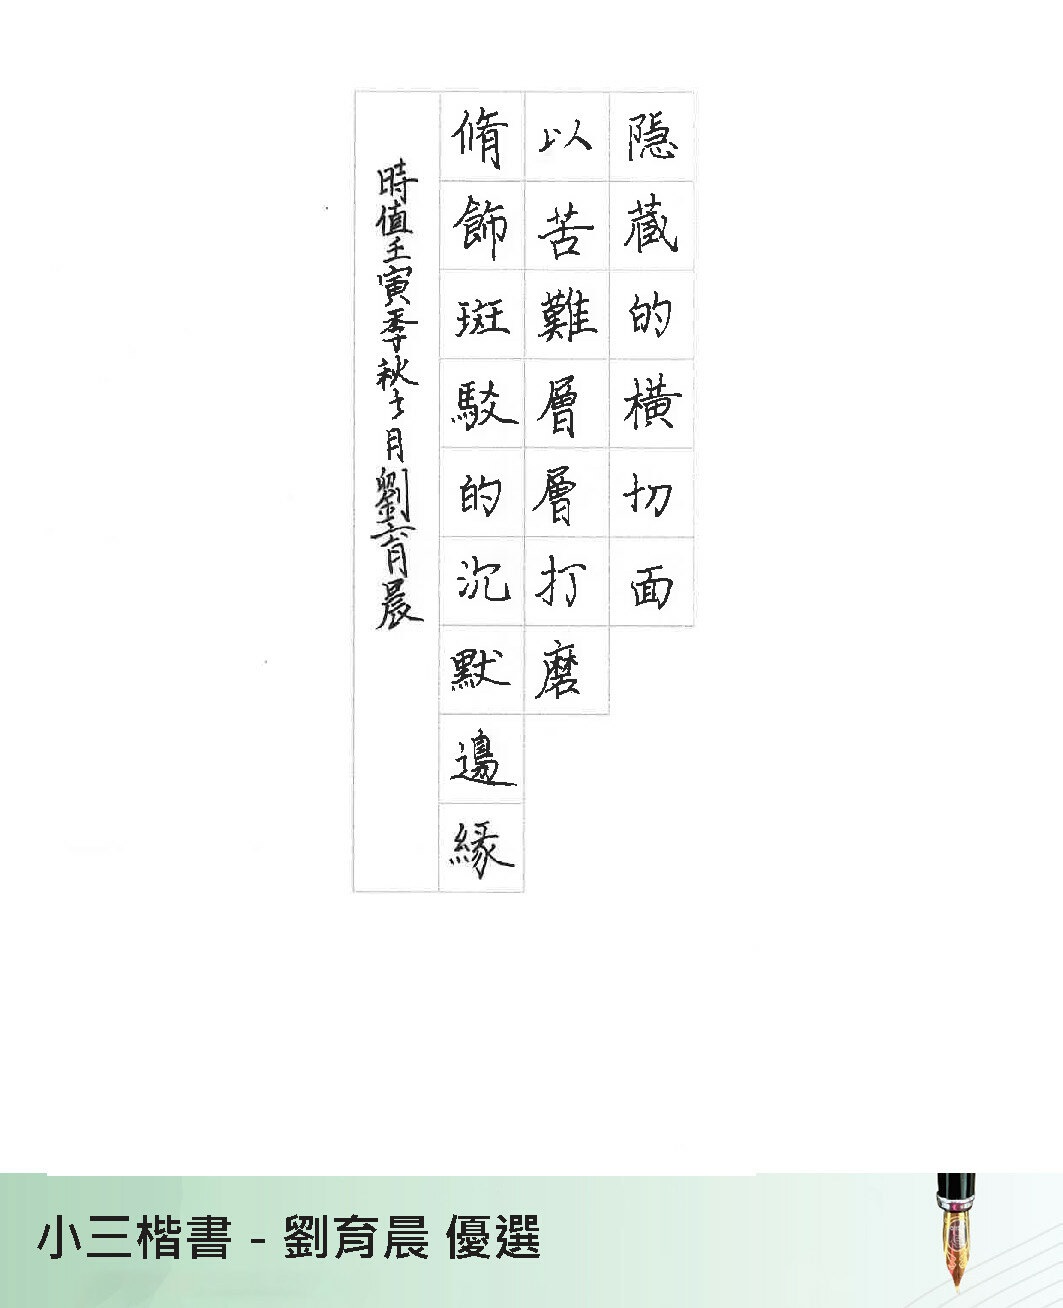 隱藏的橫切面
以苦難層層打磨
脩飾斑駁的沉默邊緣
時值壬寅季秋七月劉育晨
小三楷書 - 劉育晨 優選